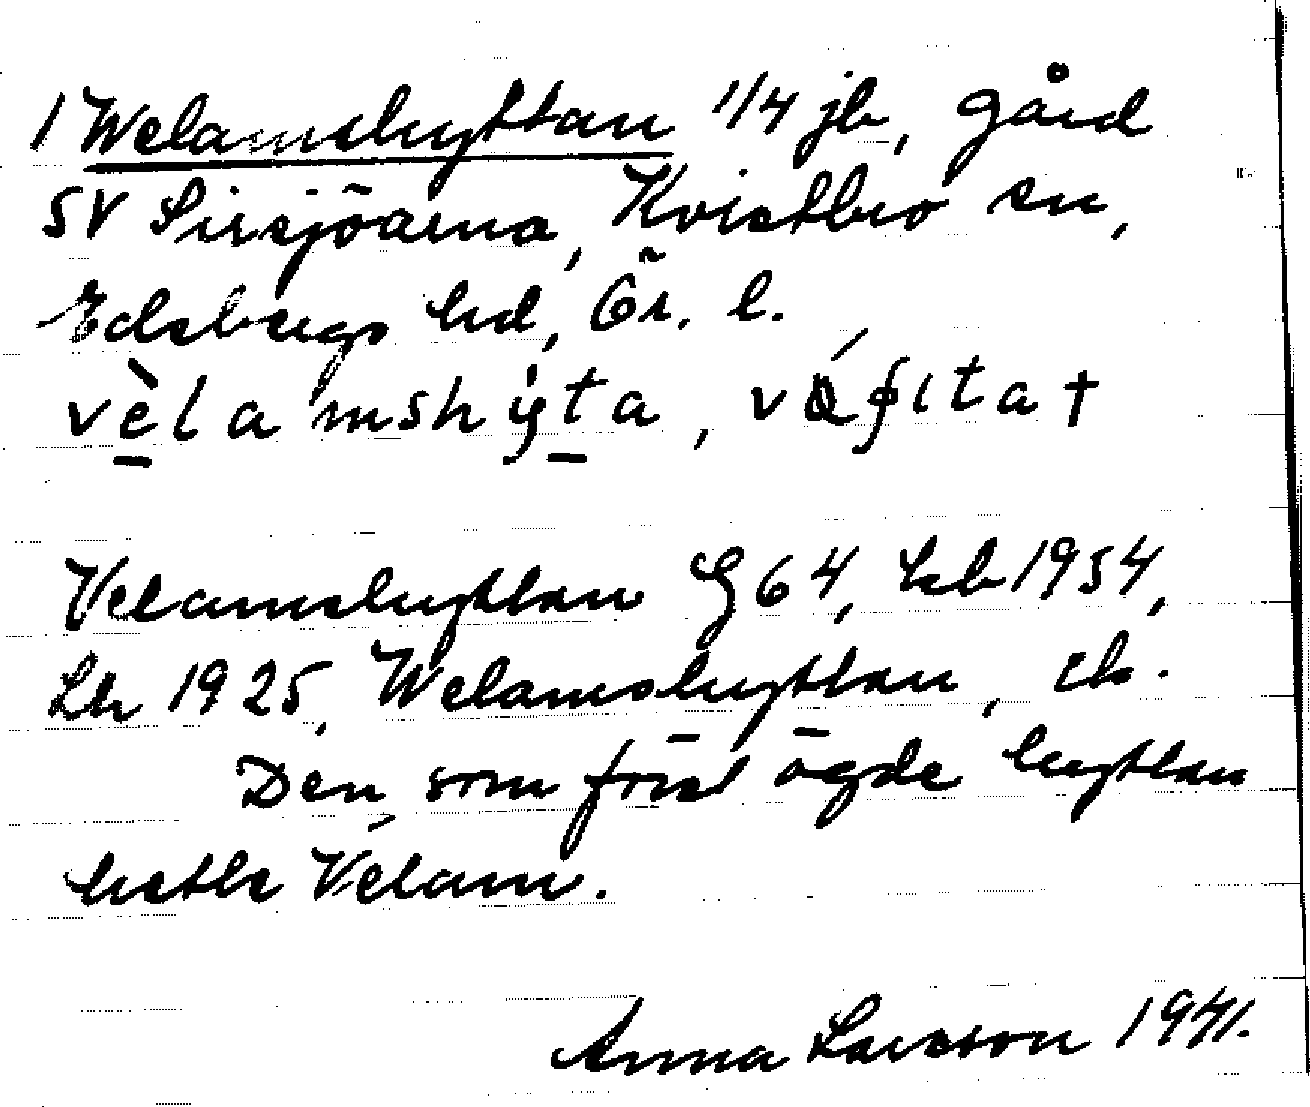 1 Welamshyttan 1/4 jb, gård
SV Sirsjöarna, Kvistbro sn,
Edsbergs hd, Ör. l.
vèlamshy̨ta,
Velamshyttan G 64, Jsb 1954,
Lh 1925, Welamshyttan, ek.
Den som först ägde hyttan
hette Velam.
Anna Larsson 1941.